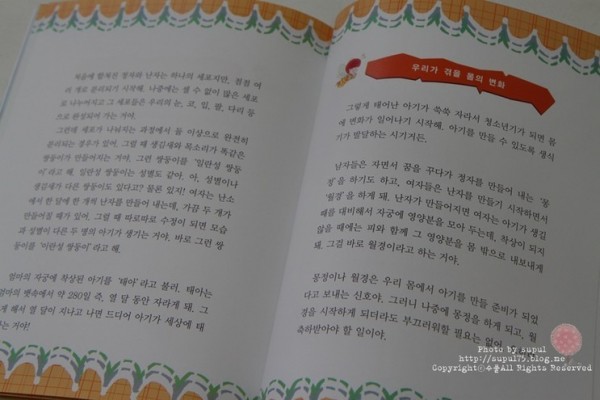 처음에 합쳐진 정자와 난자는 하나의 세포지만, 점점 여
러 개로 분리되기 시작해. 나중에는 셀 수 없이 많은 세포
로 나누어지고 그 세포들은 우리의 눈, 코, 입, 팔, 다리 등
으로 완성되어 가는 거야.
그런데 세포가 나눠지는 과정에서 둘 이상으로 완전히
분리되는 경우가 있어. 그럴 때 생김새와 목소리가 똑같은
쌍둥이가 만들어지는 거야. 그런 쌍둥이를 '일란성 쌍둥
이'라고 해. 일란성 쌍둥이는 성별도 같아. 아, 성별이나
생김새가 다른 쌍둥이도 있다고? 물론 있지! 여자는 난소
에서 한 달에 한 개씩 난자를 만들어 내는데, 가끔 두 개가
만들어질 때가 있어. 그럴 때 따로따로 수정이 되면 모습
과 성별이 다른 두 명의 아기가 생기는 거야. 바로 그런 쌍
둥이를 '이란성 쌍둥이'라고 해.
엄마의 자궁에 착상된 아기를 '태아'라고 불러. 태아는
엄마의 뱃속에서 약 280일 즉, 열 달 동안 자라게 돼. 그
게 해서 열 달이 지나고 나면 드디어 아기가 세상에 태
나는 거야!
우리가 겪을 몸의 변화
그렇게 태어난 아기가 쑥쑥 자라서 청소년기가 되면 몸
에 변화가 일어나기 시작해. 아기를 만들 수 있도록 생식
기가 발달하는 시기거든.
남자들은 자면서 꿈을 꾸다가 정자를 만들어 내는 '몽
정'을 하기도 하고, 여자들은 난자를 만들기 시작하면서
'월경'을 하게 돼. 난자가 만들어지면 여자는 아기가 생길
때를 대비해서 자궁에 영양분을 모아 두는데, 착상이 되지
않을 때에는 피와 함께 그 영양분을 몸 밖으로 내보내게
돼. 그걸 바로 월경이라고 하는 거야.
몽정이나 월경은 우리 몸에서 아기를 만들 준비가 되었
다고 보내는 신호야. 그러니 나중에 몽정을 하게 되고, 월
경을 시작하게 되더라도 부끄러워할 필요는 없어.
축하받아야 할 일이야.
Photo by supul
http://supul75.blog.me
Copyrightⓒ수풀All Rights Reserved